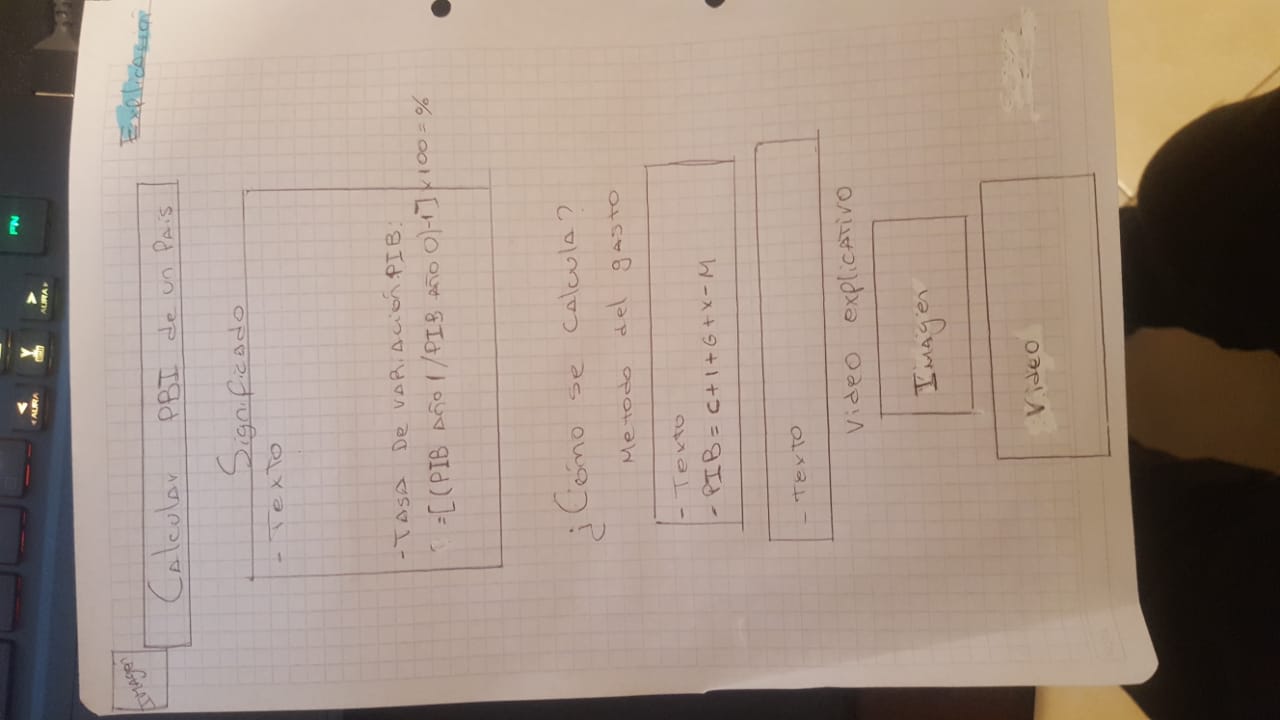 Explicación
Imagen
Calcular PBI de un País
Significado
- Texto
- Tasa De variación PIB:
=[(PIB año 1/PIB año 0)-1]x100=%
¿Cómo se calcula?
Metodo del gasto
- Texto
- PIB = C+I+G+X-M
- Texto
Video explicativo
Imagen
Video
FN
AURA
AURA